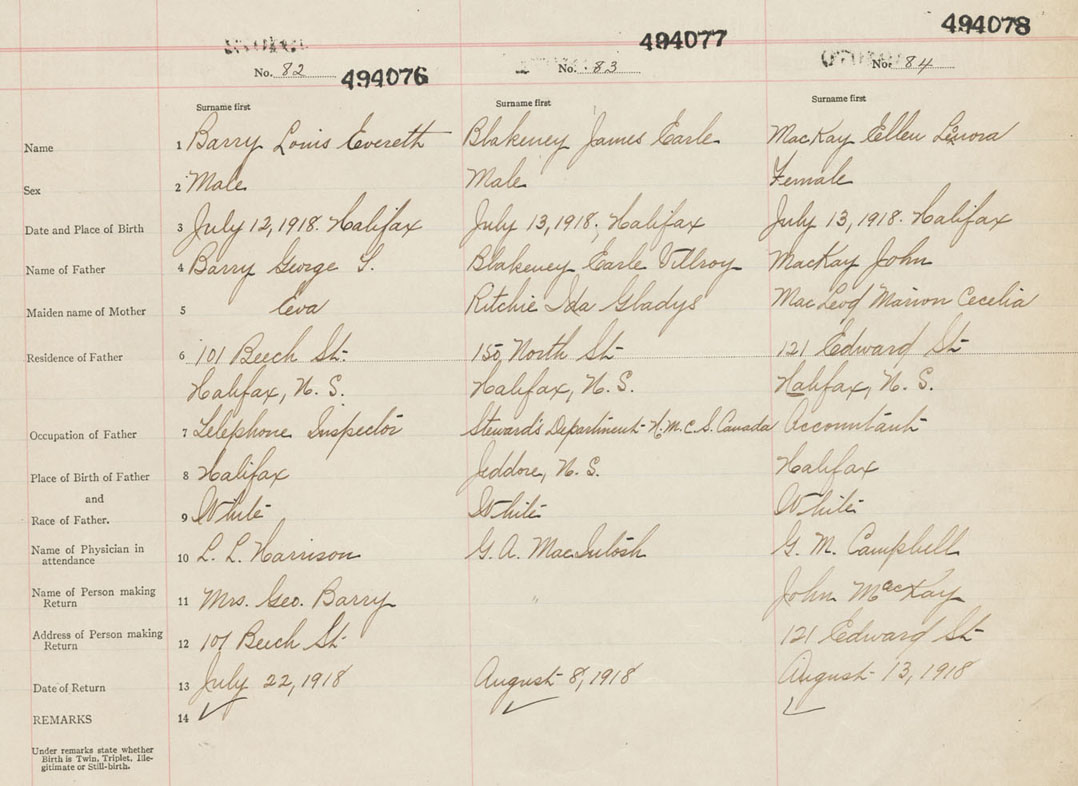 494076 494077 494078
No. 82 No. 83 No. 84
Surname first Surname first Surname first
Name 1 Barry Louis Evereth Blakeney James Earle MacKay Ellen Linora
Sex 2 Male Male Female
Date and Place of Birth 3 July 12, 1918. Halifax July 13, 1918, Halifax July 13, 1918. Halifax
Name of Father 4 Barry George S. Blakeney Earle Villroy MacKay John
Maiden name of Mother 5 Eva Ritchie Ida Gladys MacLeod Marion Cecelia
Residence of Father 6 101 Beech St. 150 North St. 121 Edward St
Halifax, N. S. Halifax, N. S. Halifax, N. S.
Occupation of Father 7 Telephone Inspector Steward's Department H.M.C.S. Canada Accountant
Place of Birth of Father 8 Halifax Jeddore, N. S. Halifax
and
Race of Father. 9 White White White
Name of Physician in attendance 10 L. L. Harrison G. A. MacIntosh G. M. Campbell
Name of Person making Return 11 Mrs. Geo. Barry " John MacKay
Address of Person making Return 12 101 Beech St. 121 Edward St.
Date of Return 13 July 22, 1918 August 8, 1918 August 13, 1918
REMARKS 14
Under remarks state whether
Birth is Twin, Triplet, Ille-
gitimate or Still-birth.